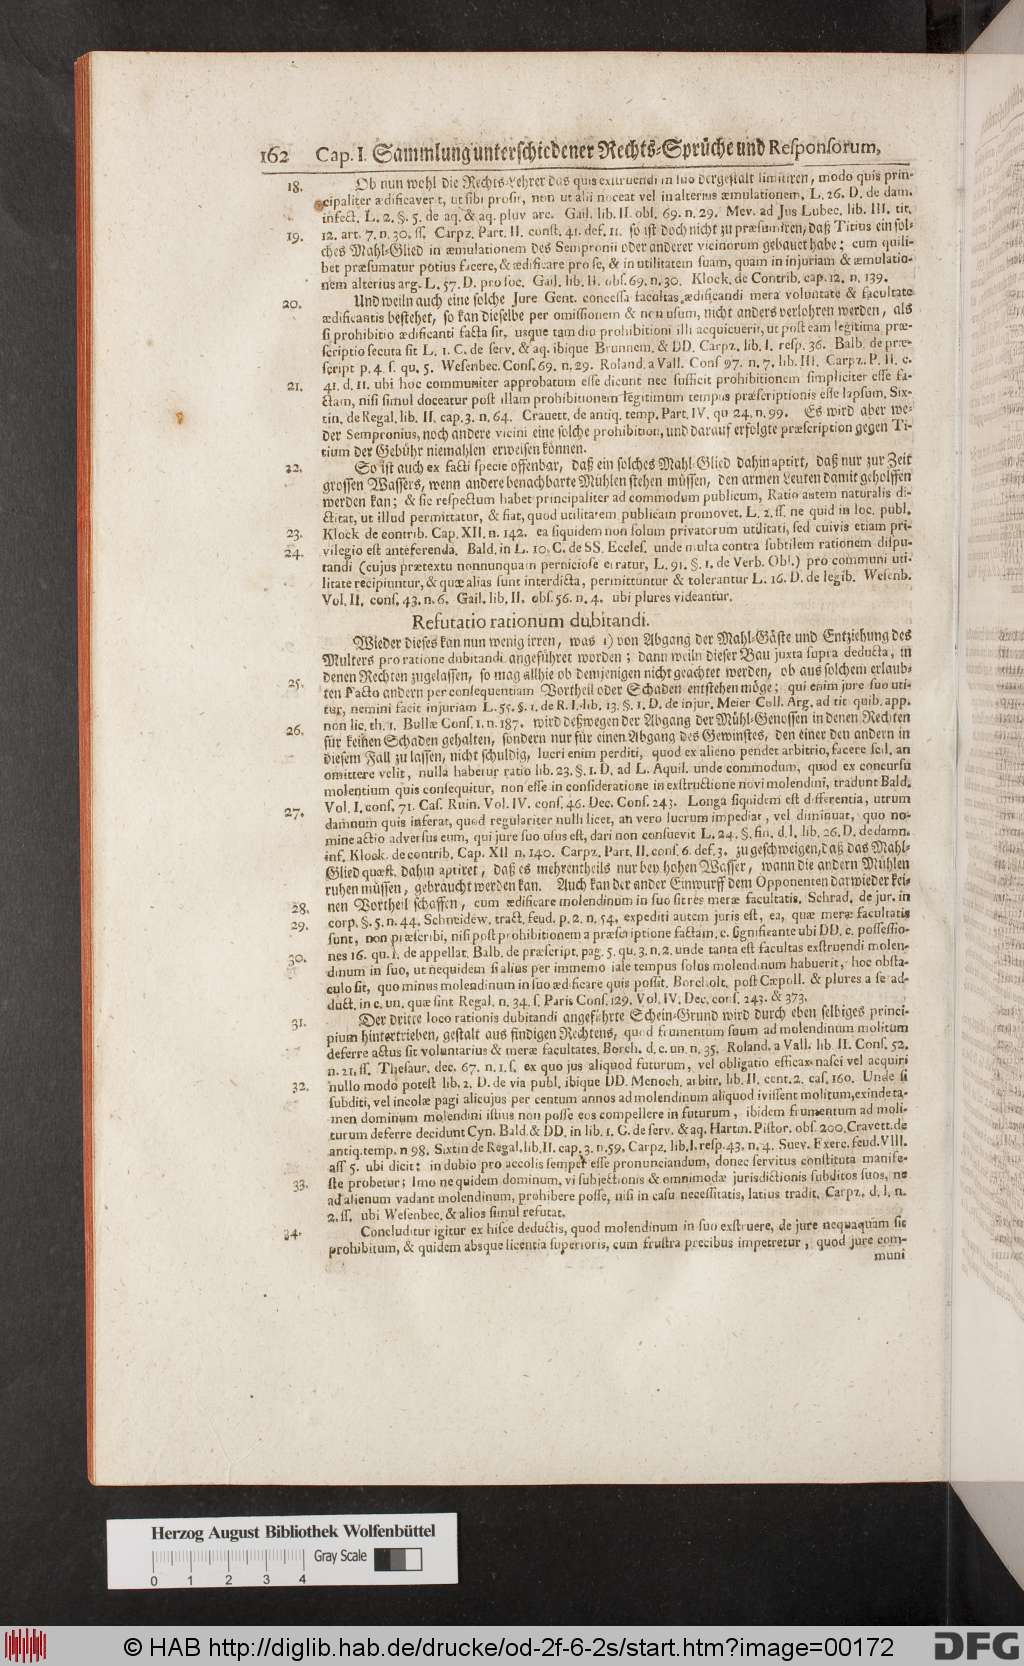 162 Cap. I. Sammlung unterschiedener Rechts-Sprüche und Responsorum,
18. Ob nun wohl die Rechts-Lehrer das quis exstruendi in suo dergestalt limitiren, modo quis prin-
cipaliter ædificaverit, ut sibi prosit, non ut alii noceat vel in alterius æmulationem, L. 26. D. de dam.
infect. L. 2. §. 5. de aq. & aq. pluv arc. Gail. lib. II obs. 69. n. 29. Mev. ad Jus Lubec. lib. III. tit.
19. 12. art. 7. n. 30. ff. Carpz. Part. II. const. 41. def. 11. so ist doch nicht zu præsumiren, daß Titius ein sol-
ches Mahl-Glied in æmulationem des Sempronii oder anderer vicinorum gebauet habe; cum quili-
bet præsumatur potius facere, & ædificare pro se, & in utilitatem suam, quam in injuriam & æmulatio-
nem alterius arg. L. 57. D. pro soc. Gail. lib. II. obs. 69. n. 30. Klock. de Contrib. cap. 12. n. 139.
20. Und weiln auch eine solche Jure Gent. concessa facultas ædificandi mera voluntate & facultate
ædificantis bestehet, so kan dieselbe per omissionem & non usum, nicht anders verlohren werden, als
si prohibitio ædificanti facta sit, usque tamdiu prohibitioni illi acquieverit, ut post eam legitima præ-
scriptio secuta sit L. 1. C. de serv. & aq. ibique Brunnem. & DD. Carpz. lib. I. resp. 36. Balb. de præ-
script p. 4. s. qu. 5. Wesenbec. Cons. 69. n. 29. Roland. a Vall. Cons 97. n. 7. lib. III. Carpz. P. II. c.
21. 41. d. 11. ubi hoc communiter approbatum esse dicunt nec sufficit prohibitionem simpliciter esse fa-
ctam, nisi simul doceatur post illam prohibitionem legitimum tempus præscriptionis esse lapsum, Six-
tin. de Regal. lib. II. cap. 3. n. 64. Cravett. de antiq. temp. Part. IV. qu 24. n. 99. Es wird aber we-
der Sempronius, noch andere vicini eine solche prohibition, und darauf erfolgte præscription gegen Ti-
tium der Gebühr niemahlen erweisen können.
22. So ist auch ex facti specie offenbar, daß ein solches Mahl-Glied dahin aptirt, daß nur zur Zeit
grossen Wassers, wenn andere benachbarte Mühlen stehen müssen, den armen Leuten damit geholffen
werden kan; & sic respectum habet principaliter ad commodum publicum, Ratio autem naturalis di-
ctitat, ut illud permittatur, & fiat, quod utilitatem publicam promovet. L. 2. ff. ne quid in loc. publ.
23. Klock de contrib. Cap. XII. n. 142. ea siquidem non solum privatorum utilitati, sed cuivis etiam pri-
24. vilegio est anteferenda. Bald. in L. 10. C. de SS. Eccles. unde multa contra subtilem rationem dispu-
tandi (cujus prætextu nonnunquam perniciose erratur, L. 91. §. 1. de Verb. Obl.) pro communi uti-
litate recipiuntur, & quæ alias sunt interdicta, permittuntur & tolerantur L. 16. D. de legib. Wesenb.
Vol. II. cons. 43. n. 6. Gail. lib. II. obs. 56. n. 4. ubi plures videantur.
Refutatio rationum dubitandi.
Wieder dieses kan nun wenig irren, was 1) von Abgang der Mahl-Gäste und Entziehung des
Multers pro ratione dubitandi angeführet worden; dann weiln dieser Bau juxta supra deducta, in
denen Rechten zugelassen, so mag allhie ob demjenigen nicht geachtet werden, ob aus solchem erlaub-
25. ten Facto andern per consequentiam Vortheil oder Schaden entstehen möge; qui enim jure suo uti-
tur, nemini facit injuriam L. 55. §. 1. de R. I. lib. 13. §. 1. D. de injur. Meier Coll. Arg. ad tit quib. app.
26. non lic. th. 1. Bullæ Cons. 1. n. 187. wird deßwegen der Abgang der Mühl-Genossen in denen Rechten
für keinen Schaden gehalten, sondern nur für einen Abgang des Gewinstes, den einer den andern in
diesem Fall zu lassen, nicht schuldig, lucri enim perditi, quod ex alieno pendet arbitrio, facere scil. an
omittere velit, nulla habetur ratio lib. 23. §. 1. D. ad L. Aquil. unde commodum, quod ex concursu
molentium quis consequitur, non esse in consideratione in exstructione novi molendini, tradunt Bald.
27. Vol. I. cons. 71. Cas. Ruin. Vol. IV. cons. 46. Dec. Cons. 243. Longa siquidem est differentia, utrum
damnum quis inferat, quod regulariter nulli licet, an vero lucrum impediat, vel diminuat, quo no-
mine actio adversus eum, qui jure suo usus est, dari non consuevit L. 24. §. fin. d. l. lib. 26. D. de damn.
inf. Klock. de contrib. Cap. XII n. 140. Carpz. Part. II. cons. 6. def. 3. zu geschweigen, daß das Mahl-
Glied quæst. dahin aptiret, daß es mehrentheils nur bey hohen Wasser, wann die andern Mühlen
ruhen müssen, gebraucht werden kan. Auch kan der ander Einwurff dem Opponenten darwieder kei-
28. nen Vortheil schaffen, cum ædificare molendinum in suo sit res meræ facultatis. Schrad. de jur. in
29. corp. §. 5. n. 44. Schneidew. tract. feud. p. 2. n. 54. expediti autem juris est, ea, quæ meræ facultatis
sunt, non præscribi, nisi post prohibitionem a præscriptione factam. c. significante ubi DD. c. possessio-
30. nes 16. qu. 1. de appellat. Balb. de præscript. pag. 5. qu. 3. n. 2. unde tanta est facultas exstruendi molen-
dinum in suo, ut nequidem si alius per immemoriale tempus solus molendinum habuerit, hoc obsta-
culo sit, quo minus molendinum in suo ædificare quis possit. Borcholt. post Cæpoll. & plures a se ad-
duct. in c. un. quæ sint Regal. n. 34. s. Paris Cons. 129. Vol. IV. Dec. cons. 243. & 373.
31. Der dritte loco rationis dubitandi angeführte Schein-Grund wird durch eben selbiges princi-
pium hintertrieben, gestalt aus findigen Rechtens, quod frumentum suum ad molendinum molitum
deferre actus sit voluntarius & meræ facultates. Borch. d. c. un. n. 35. Roland. a Vall. lib. II. Cons. 52.
n. 21. ff. Thesaur. dec. 67. n. 1. s. ex quo jus aliquod futurum, vel obligatio efficax nasci vel acquiri
32. nullo modo potest lib. 2. D. de via publ. ibique DD. Menoch. arbitr. lib. II. cent. 2. cas. 160. Unde si
subditi, vel incolæ pagi alicujus per centum annos ad molendinum aliquod ivissent molitum, exinde ta-
men dominum molendini istius non posse eos compellere in futurum, ibidem frumentum ad moli-
turum deferre decidunt Cyn. Bald. & DD. in lib. 1. C. de serv. & aq. Hartm. Pistor. obs. 200. Cravett. de
antiq. temp. n 98. Sixtin de Regal. lib. II. cap. 3. n. 59. Carpz. lib. I. resp. 43. n. 4. Suev. Exerc. feud. VIII.
ass 5. ubi dicit: in dubio pro accolis semper esse pronunciandum, donec servitus constituta manife-
33. ste probetur; Imo nequidem dominum, vi subjectionis & omnimodæ jurisdictionis subditos suos, ne
ad alienum vadant molendinum, prohibere posse, nisi in casu necessitatis, latius tradit. Carpz. d. l. n.
2. ff. ubi Wesenbec. & alios simul refutat.
34. Concluditur igitur ex hisce deductis, quod molendinum in suo exstruere, de jure nequaquam sit
prohibitum, & quidem absque licentia superioris, cum frustra precibus impetretur, quod jure com-
muni
Herzog August Bibliothek Wolfenbüttel
Gray Scale
0 1 2 3 4
© HAB http://diglib.hab.de/drucke/od-2f-6-2s/start.htm?image=00172
DFG